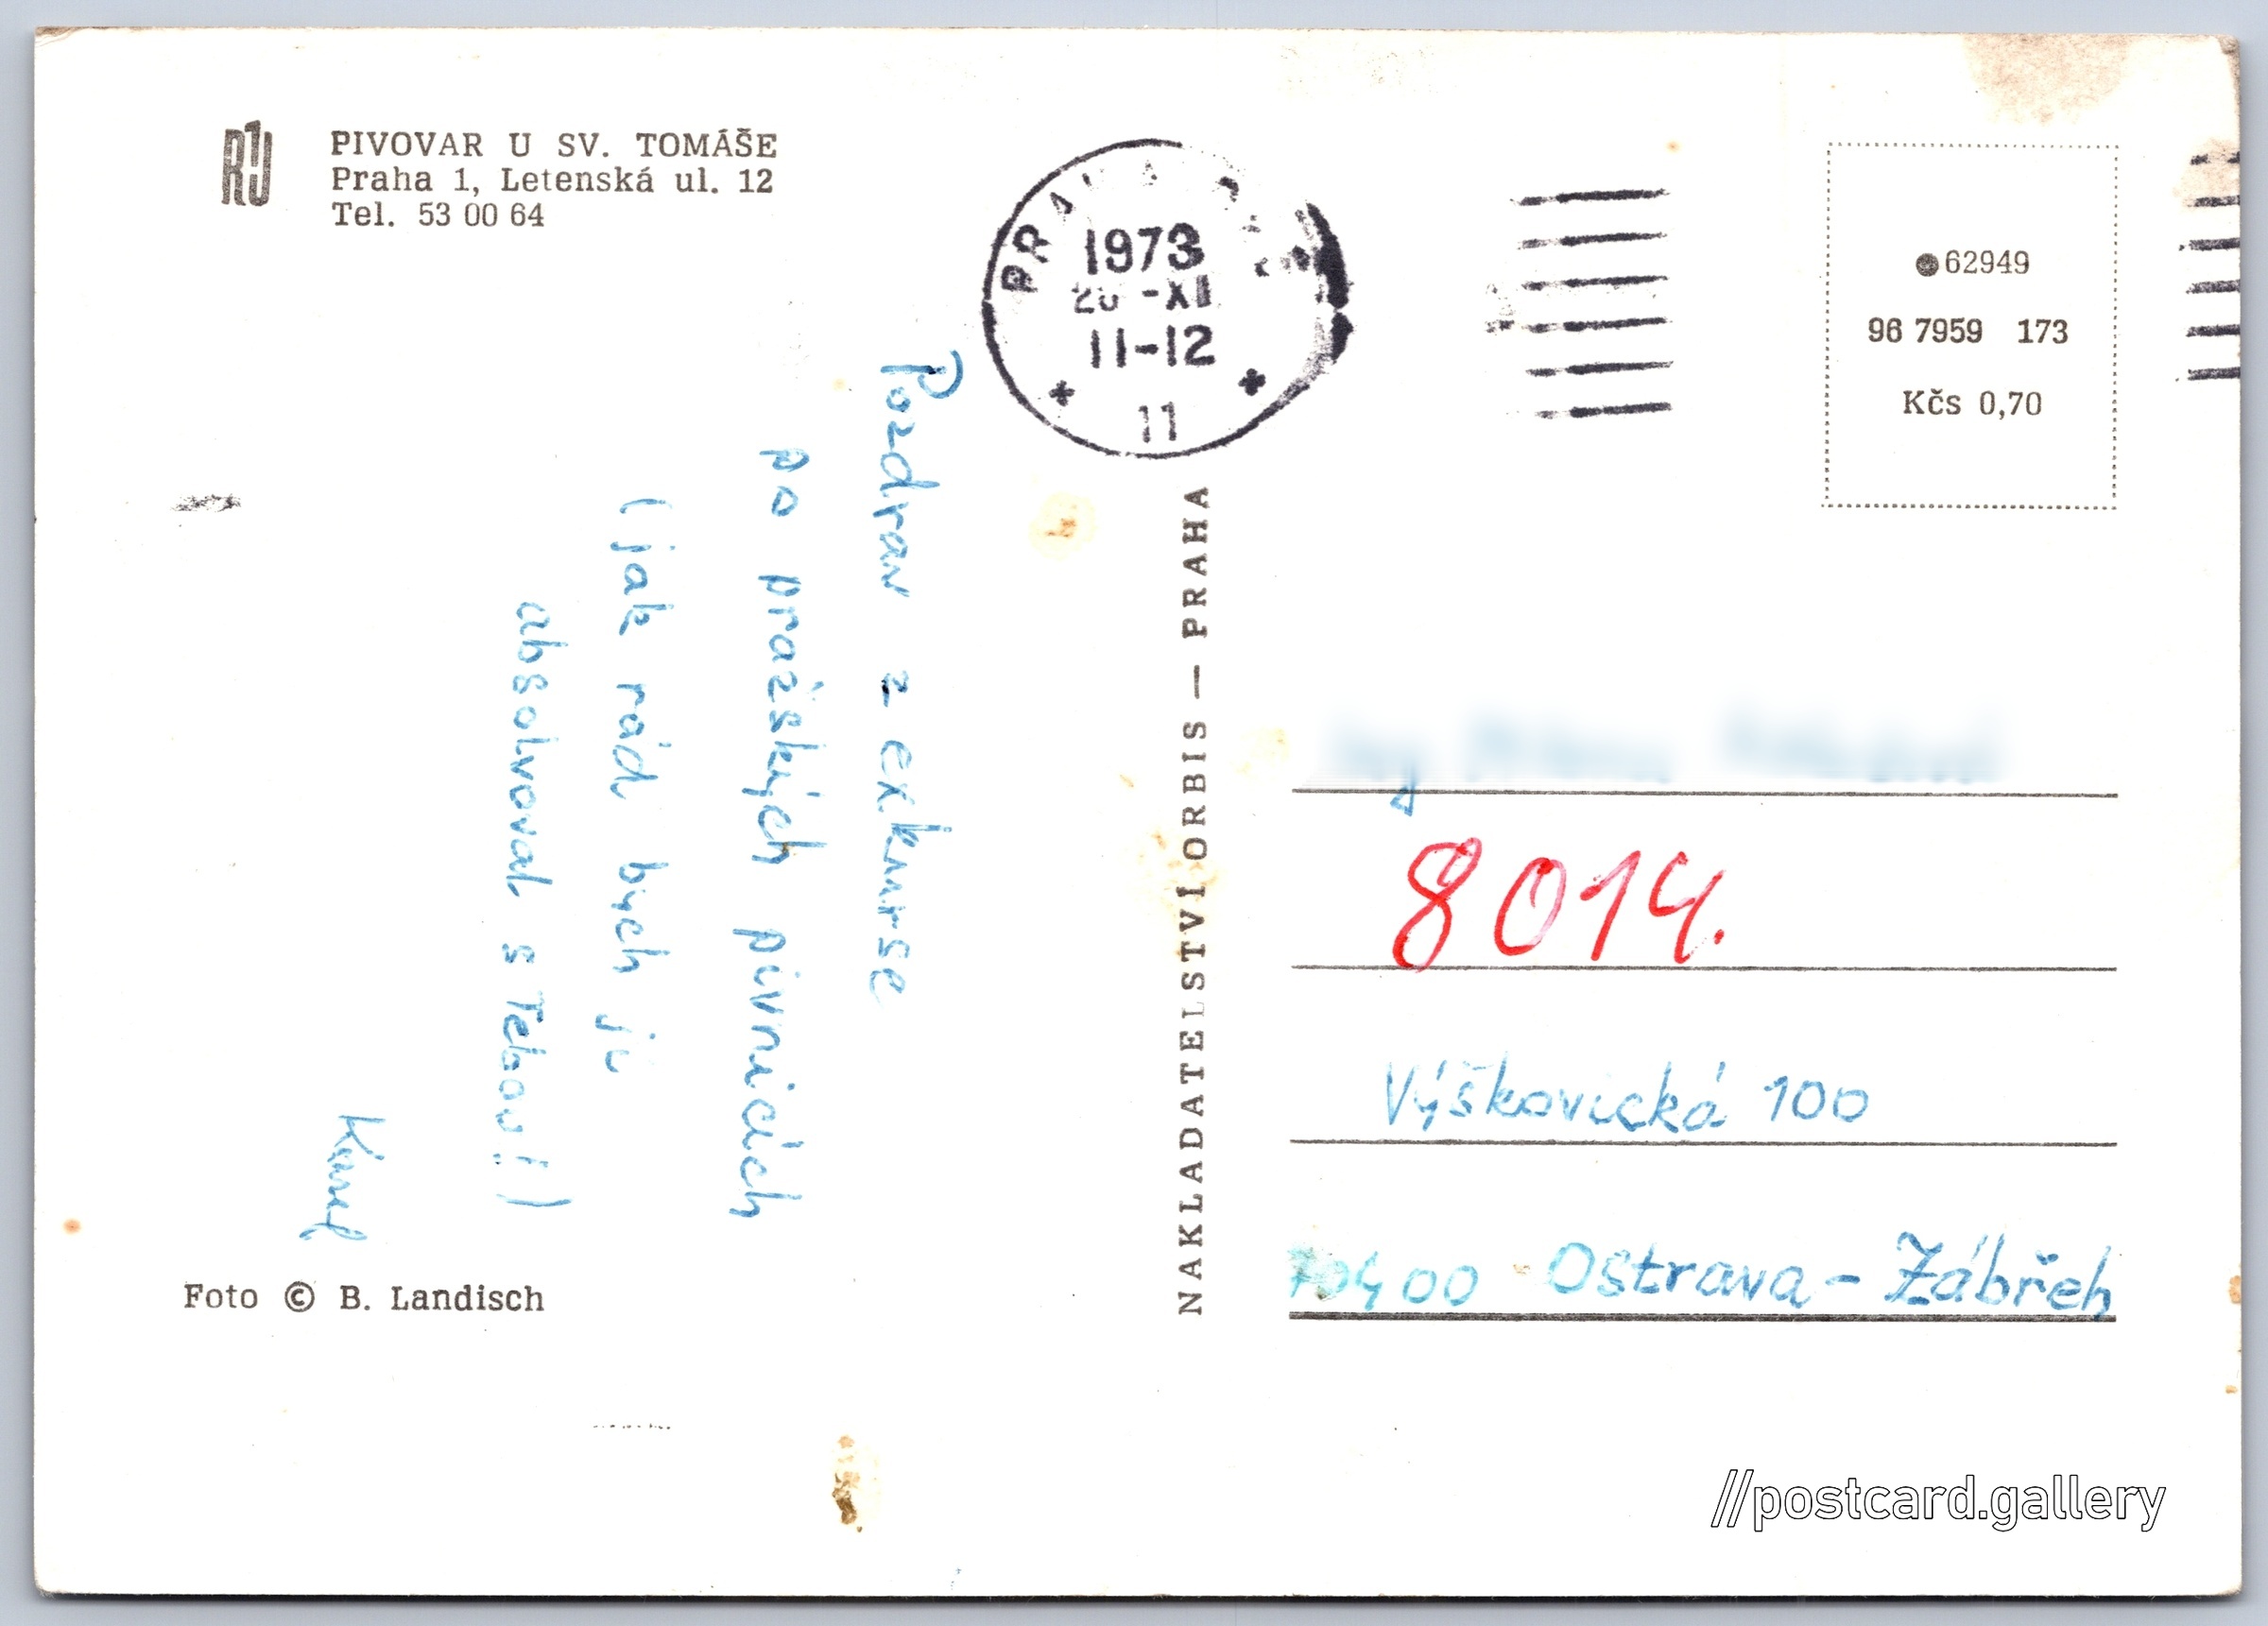 PIVOVAR U SV. TOMÁŠE
Praha 1, Letenská ul. 12
Tel. 53 00 64
1973
11-12
11
62949
96 7959 173
Kčs 0,70
Pozdrav z exkurse
po pražských pivnicích
(jak rád bych ji
absolvoval s Tebou!)
Karel
Foto © B. Landisch
NAKLADATELSTVÍ ORBIS — PRAHA
8014.
Výškovická 100
70400 Ostrava - Zábřeh
//postcard.gallery